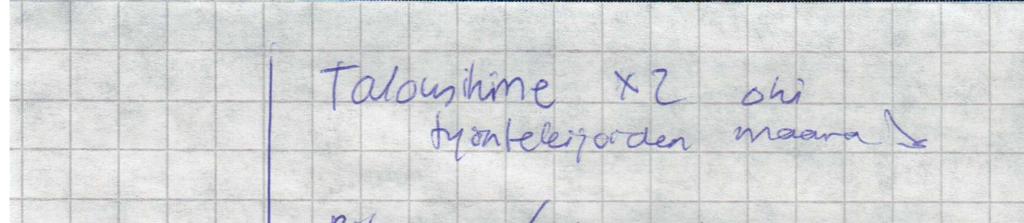 Talousihme x2 ohi
työntekijöiden määrä ↘